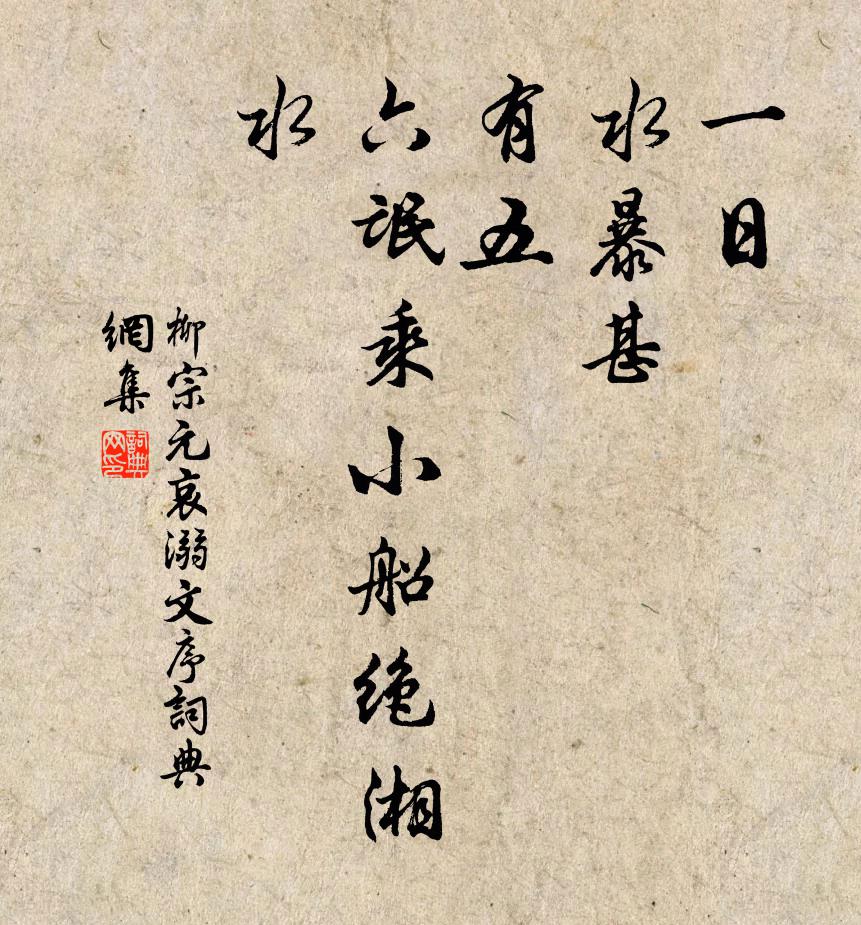 一日
水暴甚
有五
六氓乘小船绝湘
水
柳宗元哀溺文序詞典
網集
詞典
网印